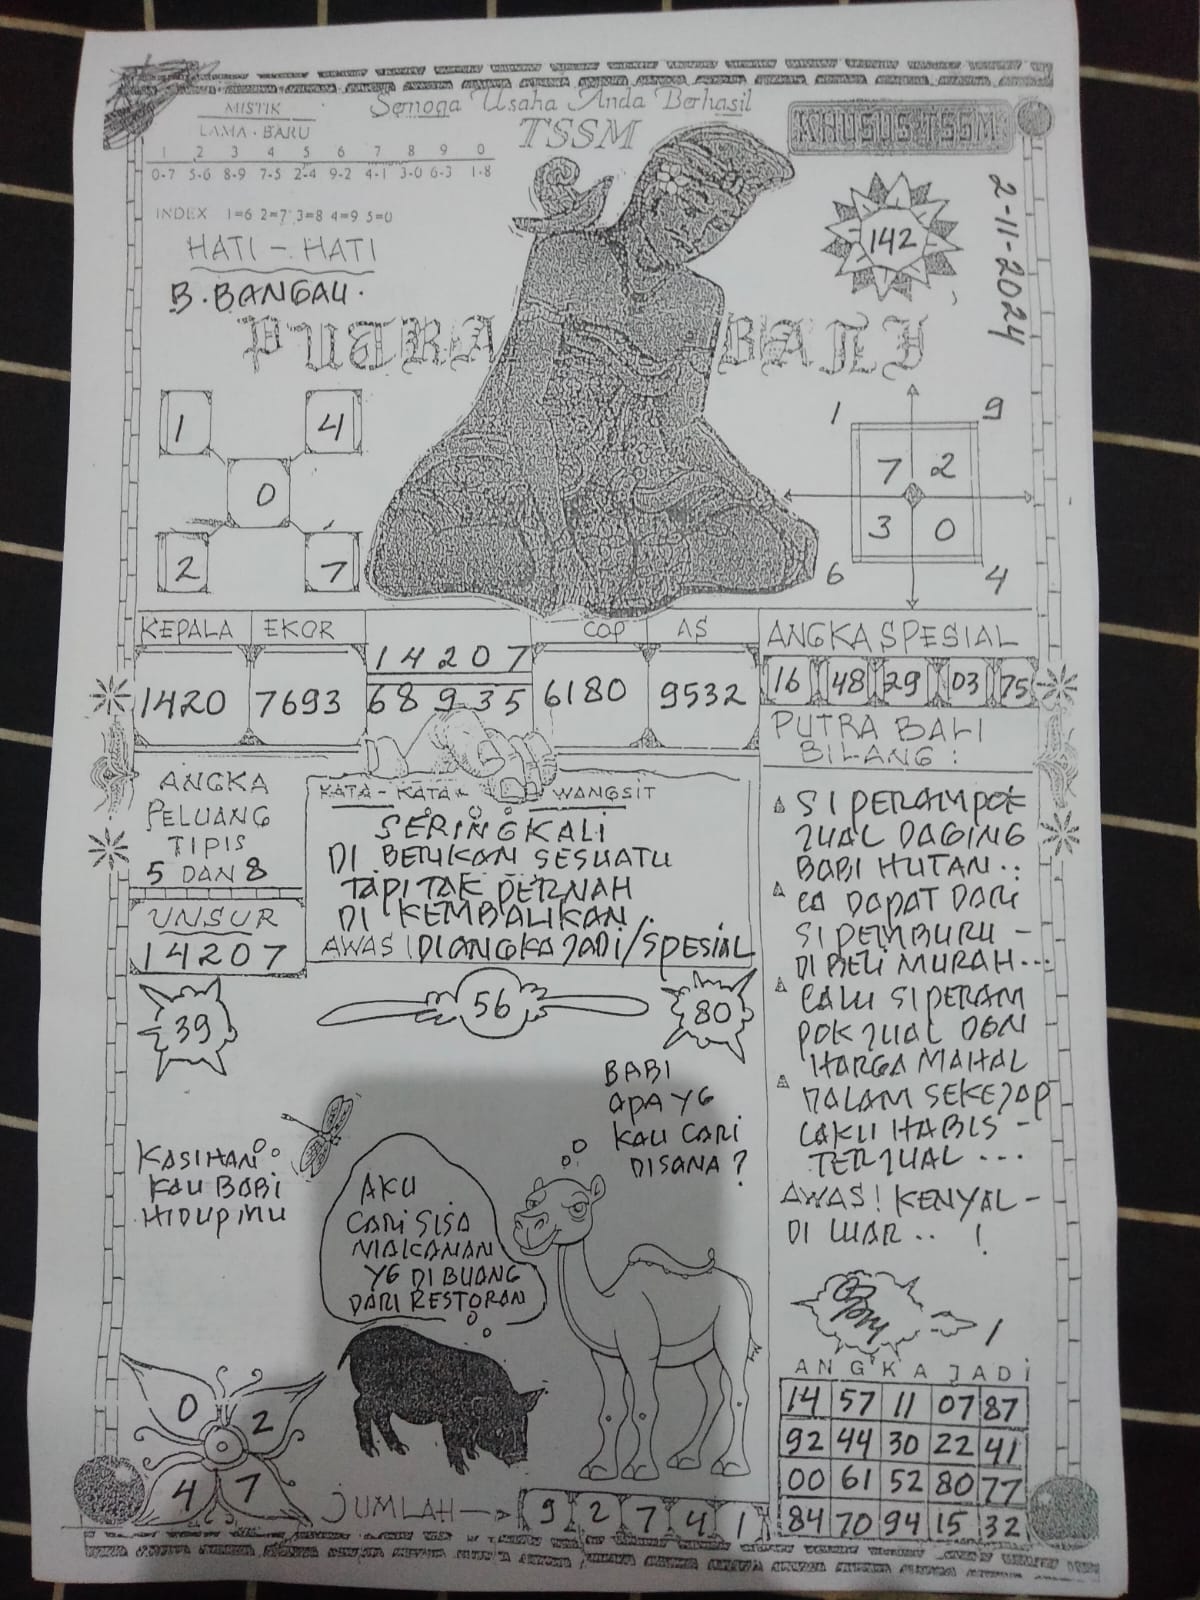 MISTIK
LAMA - BARU
1 2 3 4 5 6 7 8 9 0
0-7 5-6 8-9 7-5 2-4 9-2 4-1 3-0 6-3 1-8
INDEX 1=6 2=7 3=8 4=9 5=0
HATI - HATI
B. BANGAU.
Semoga Usaha Anda Berhasil
TSSM
KHUSUS TSSM
142
2-11-2024
PUTRA BALI
1 4
0
2 7
1 9
7 2
3 0
6 4
KEPALA EKOR
1420 7693
14207
68935
COP AS
6180 9532
ANGKA SPESIAL
16 48 29 03 75
ANGKA
PELUANG
TIPIS
5 DAN 8
UNSUR
14207
KATA - KATA WANGSIT
SERINGKALI
DI BERIKAN SESUATU
TAPI TAK PERNAH
DI KEMBALIKAN.
AWAS! DI ANGKA JADI/SPESIAL
PUTRA BALI
BILANG :
SI PERAMPOK
JUAL DAGING
BABI HUTAN..
LA DAPAT DARI
SI PEMBURU -
DI BELI MURAH...
LALU SI PERAM
POK JUAL DGN
HARGA MAHAL
DALAM SEKEJAP
LAKU HABIS -
TERJUAL ...
AWAS! KENYAL -
DI LUAR .. !
39
56
80
BABI
APA YG
KAU CARI
DISANA ?
KASIHAN
KAU BABI
HIDUPMU
AKU
CARI SISA
MAKANAN
YG DI BUANG
DARI RESTORAN
0 2
4 7
JUMLAH
9 2 7 4 1
1
ANGKA JADI
14 57 11 07 87
92 44 30 22 41
00 61 52 80 77
84 70 94 15 32